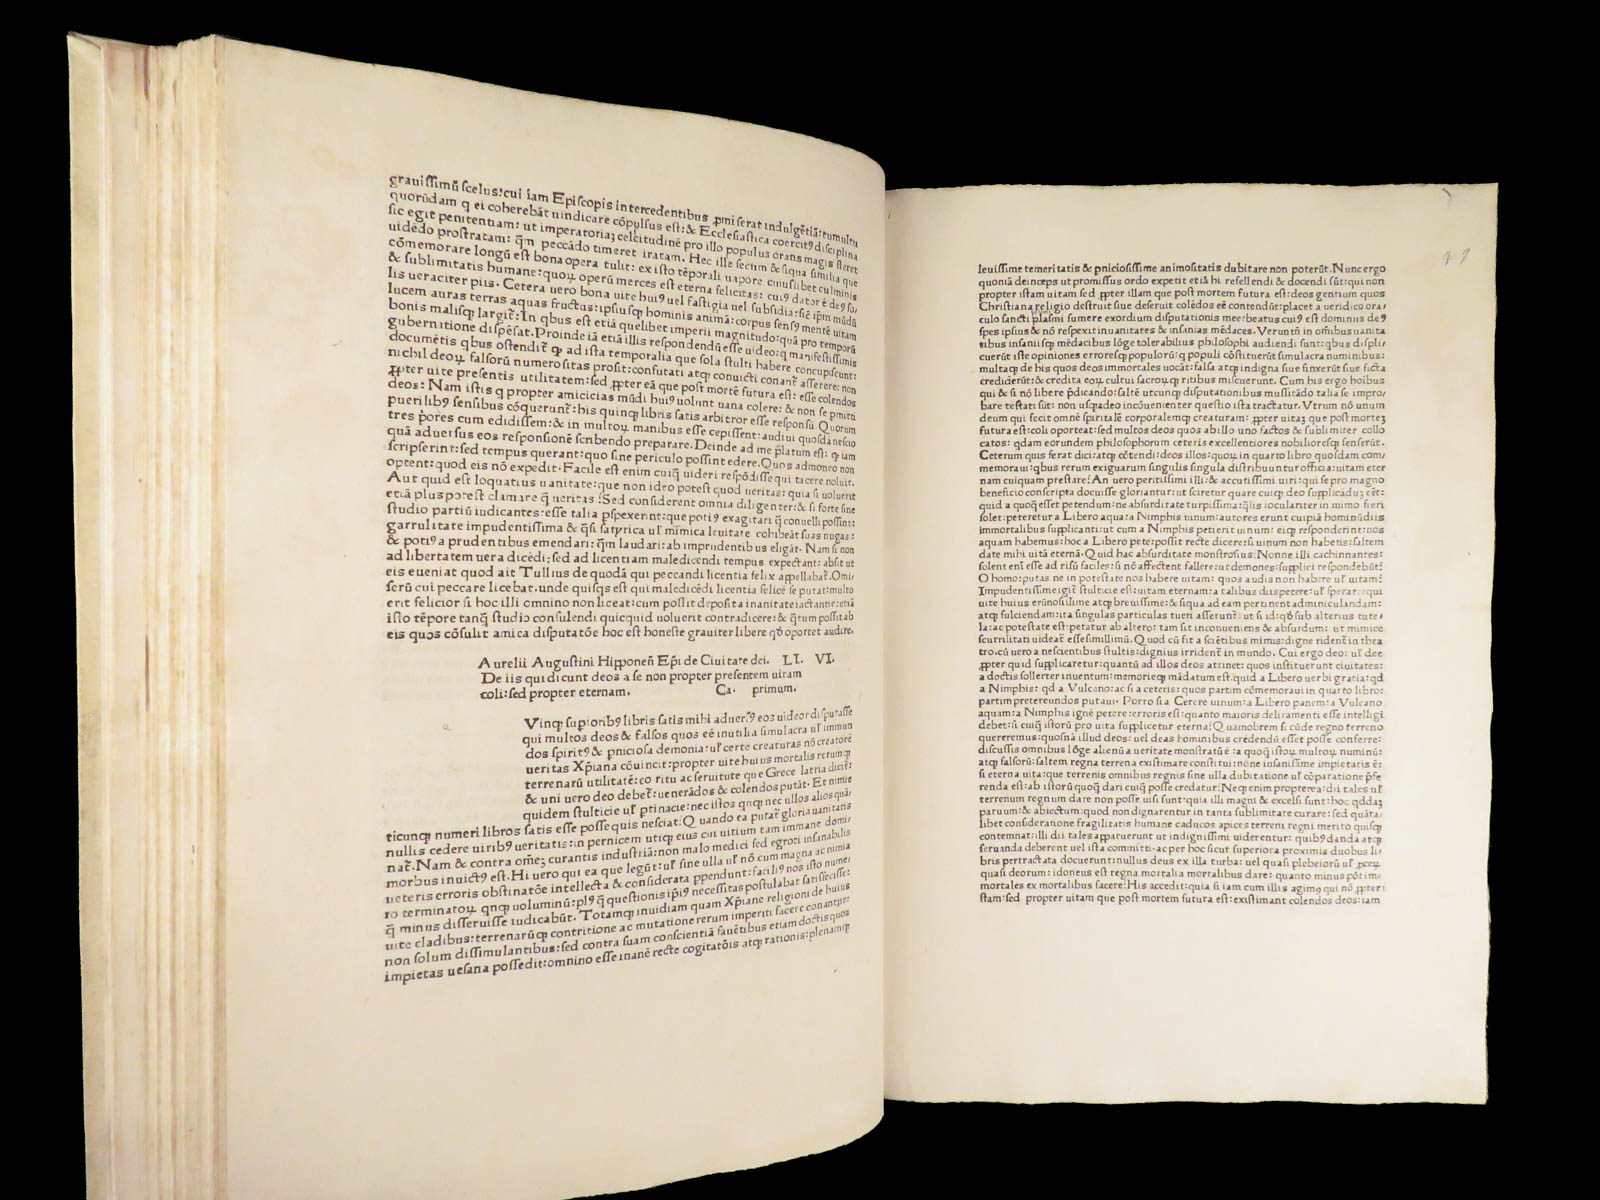 grauissimū scelus: cui iam Episcopis intercedentibus ꝓmiserat indulgētiā: tumultu
quorūdam q ei coherebāt uindicare cōpulsus est: & Ecclesiastica coercitꝰ disciplina
sic egit penitentiam: ut imperatoriaꝫ celcitudinē pro illo populus orans magis fleret
uidēdo prostratam: q̄m peccādo timeret iratam. Hec ille secum & siqua similia que
cōmemorare longū est bona opera tulit: ex isto tēporali uapore cuiuslibet culminis
& sublimitatis humane: quoꝝ operū merces est eterna felicitas: cuiꝰ dator ē deꝰ so/
lis ueraciter piis. Cetera uero bona uite huiꝰ uel fastigia uel subsidia: sic̄ ipm̄ mūdū
lucem auras terras aquas fructus: ipsiusqꝫ hominis animā: corpus sensꝰ mentē uitam
bonis malisqꝫ largit̄: In qbus est etiā quelibet imperii magnitudo: quā pro temporū
gubernatione dispēsat. Proinde iā etiā illis respondendū esse uideo: q manifestissimis
documētis qbus ostendit̄ ꝙ ad ista temporalia que sola stulti habere concupiscunt:
nichil deoꝝ falsorū numerositas prosit: confutati atqꝫ conuicti conant̄ asserere: non
ꝓpter uite presentis utilitatem: sed ꝓpter eā que post mortē futura est: esse colendos
deos: Nam istis q propter amicicias mūdi huiꝰ uolunt uana colere: & non se pmitti
puerilibꝰ sensibus cōquerunt̄: his quinqꝫ libris satis arbitror esse responsū Quorum
tres p̄ores cum edidissem: & in multoꝝ manibus esse cepissent: audiui quosdā nescio
quā aduersus eos responsionē scribendo preparare. Deinde ad me p̄latum est: ꝙ iam
scripserint: sed tempus querant: quo sine periculo possint edere. Quos admoneo non
optent: quod eis nō expedit. Facile est enim cuiqꝫ uideri respōdisse qui tacere noluit.
Aut quid est loquatius uanitate: que non ideo potest quod ueritas: quia si uoluerit
etiā plus potest clamare q̄ ueritas? Sed considerent omnia diligenter: & si forte sine
studio partiū iudicantes: esse talia pspexerint: que potiꝰ exagitari q̄ conuelli possint:
garrulitate impudentissima & q̄si satyrica ul̓ mimica leuitate cohibeāt suas nugas:
& potiꝰ a prudentibus emendari: q̄m laudari: ab imprudentibus eligāt. Nam si non
ad libertatem uera dicēdi: sed ad licentiam maledicendi tempus expectant: absit ut
eis eueniat quod ait Tullius de quodā qui peccandi licentia felix appellabat̄. O mi/
serū cui peccare licebat. unde quisqs est qui maledicēdi licentia felicē se putat: multo
erit felicior si hoc illi omnino non liceat: cum possit deposita inanitate iactantie: etiā
isto tēpore tanq̄ studio consulendi quicquid uoluerit contradicere: & q̄tum possit ab
eis quos cōsulit amica disputatōe hoc est honeste grauiter libere qd̄ oportet audire.
Aurelii Augustini Hipponeñ Ep̄i de Ciuitate dei. LI. VI.
De iis qui dicunt deos a se non propter presentem uitam
coli: sed propter eternam. Ca. primum.
Vinqꝫ supioribꝰ libris satis mihi aduersꝰ eos uideor disputasse
qui multos deos & falsos quos eē inutilia simulacra ul̓ immun
dos spiritꝰ & pniciosa demonia: ul̓ certe creaturas nō creatorē
ueritas Xp̄iana cōuincit: propter uite huius mortalis rerumqꝫ
terrenarū utilitatē: eo ritu ac seruitute que Grece latria dicit̄:
& uni uero deo debet̄: uenerādos & colendos putāt. Et nimie
quidem stulticie ul̓ ptinacie: nec istos qnqꝫ nec ullos alios quā/
ticunqꝫ numeri libros satis esse posse quis nesciat: Quando ea putat̄ gloria uanitatis
nullis cedere uiribꝰ ueritatis: in pernicem utiqꝫ eius cui uitium tam immane domi/
nat̄. Nam & contra om̄eꝫ curantis industriā: non malo medici sed egroti insanabilis
morbus inuictꝰ est. Hi uero qui ea que legūt: ul̓ sine ulla ul̓ nō cum magna ac nimia
ueteris erroris obstinatōe intellecta & considerata ppendunt: faciliꝰ nos isto nume/
ro terminatoꝝ qnqꝫ uoluminū: plꝰ q̄ questionis ip̄iꝰ necessitas postulabat satisfecisse:
q̄ minus disseruisse iudicabūt. Totamqꝫ inuidiam quam Xp̄iane religioni de huius
uite cladibus: terrenarūqꝫ contritione ac mutatione rerum imperiti facere conant̄
non solum dissimulantibus: sed contra suam conscientiā fauētibus etiam doctis quos
impietas uesana possedit: omnino esse inanē recte cogitatōis atqꝫ rationis: plenamqꝫ
leuissime temeritatis & pniciosissime animositatis dubitare non poterūt. Nunc ergo
quoniā deinceps ut promissus ordo expetit etiā hi refellendi & docendi sūt: qui non
propter istam uitam sed ꝓpter illam que post mortem futura est: deos gentium quos
Christiana religio destruit siue deseruit colēdos eē contendūt: placet a ueridico ora/
culo sancti psalmi sumere exordium disputationis mee: beatus cuiꝰ est dominus deꝰ
spes ipsius & nō respexit in uanitates & insanias mēdaces. Verunt̄n in om̄ibus uanita
tibus insaniisqꝫ mēdacibus lōge tolerabilius philosophi audiendi sunt: qbus displi/
cuerūt iste opiniones erroresqꝫ populorū: q populi cōstituerūt simulacra numinibus:
multaqꝫ de his quos deos immortales uocāt: falsa atqꝫ indigna siue finxerūt siue ficta
crediderūt: & credita eoꝝ cultui sacroꝝqꝫ ritibus miscuerunt. Cum his ergo hoībus
qui & si nō libere p̄dicando: saltē utcunqꝫ disputationibus mussitādo talia se impro/
bare testati sūt: non usqꝫadeo incōuenienter questio ista tractatur. Vtrum nō unum
deum qui fecit omnē spiritalē corporalemqꝫ creaturam: ꝓpter uitaꝫ que post morteꝫ
futura est: coli oporteat: sed multos deos quos ab illo uno factos & sublimiter collo
catos: qdam eorundem philosophorum ceteris excellentiores nobilioresqꝫ senserūt.
Ceterum quis ferat dici: atqꝫ cōtendi: deos illos: quoꝝ in quarto libro quosdam com/
memoraui: qbus rerum exiguarum singulis singula distribuuntur officia: uitam eter
nam cuiquam prestare? An uero peritissimi illi: & accutissimi uiri: qui se pro magno
beneficio conscripta docuisse gloriantur: ut sciretur quare cuiqꝫ deo supplicāduꝫ eēt:
quid a quoqꝫ esset petendum: ne absurditate turpissima: q̄lis ioculariter in mimo fieri
solet: peteretur a Libero aqua: a Nimphis uinum: autores erunt cuipiā hominū diis
immortalibus supplicanti: ut cum a Nimphis petierit uinum: eiqꝫ responderint: nos
aquam habemus: hoc a Libero pete: possit recte dicere: si uinum non habetis: saltem
date mihi uitā eternā. Quid hac absurditate monstrosius: Nonne illi cachinnantes:
solent enī esse ad risū faciles: si nō affectent fallere: ut demones: supplici respondebūt:
O homo: putas ne in potestate nos habere uitam: quos audis non habere ul̓ uitam?
Impudentissime igit̄ stulticie est: uitam eternam: a talibus diis petere: ul̓ sperare: qui
uite huius erūnosissime atqꝫ breuissime: & siqua ad eam pertinent adminiculandam:
atqꝫ fulciendam: ita singulas particulas tueri asserunt̄: ut si id: qd̄ sub alterius tute/
la: ac potestate est: petatur ab altero: tam sit inconueniens & absurdum: ut mimice
scurrilitati uideat̄ esse simillimū. Quod cū fit a sciētibus mimis: digne rident̄ in thea
tro. cū uero a nescientibus stultis: dignius irrident̄ in mundo. Cui ergo deo: ul̓ dee
ꝓpter quid supplicaretur: quantū ad illos deos attinet: quos instituerunt ciuitates:
a doctis sollerter inuentum: memorieqꝫ mādatum est. quid a Libero uerbi gratia: qd
a Nimphis: qd a Vulcano: ac si a ceteris: quos partim cōmemoraui in quarto libro:
partim pretereundos putaui. Porro si a Cerere uinum: a Libero panem: a Vulcano
aquam: a Nimphis ignē petere: erroris est: quanto maioris deliramenti esse intelligi
debet: si cuiqꝫ istorū pro uita supplicetur eterna? Quamobrem si cūde regno terreno
quereremus: quosnā illud deos: uel deas hominibus credendū esset posse conferre:
discussis omnibus lōge alienū a ueritate monstratū ē: a quoqꝫ istoꝝ multoꝝ numinū:
atqꝫ falsorū: saltem regna terrena existimare constitui: nōne insanissime impietatis ē:
si eterna uita: que terrenis omnibus regnis sine ulla dubitatione ul̓ cōparatione p̄fe
renda est: ab istorū quoqꝫ dari cuiqꝫ posse credatur? Neqꝫ enim propterea: dii tales ul̓
terrenum regnum dare non posse uisi sunt: quia illi magni & excelsi sunt: hoc qddaꝫ
paruum: & abiectum: quod non dignarentur in tanta sublimitate curare: sed quāta/
libet consideratione fragilitatis humane caducos apices terreni regni merito quisqꝫ
contemnat: illi dii tales apparuerunt ut indignissimi uiderentur: quibꝰ danda atqꝫ
seruanda deberent uel ista committi. ac per hoc sicut superiora proximis duobus li/
bris pertractata docuerunt: nullus deus ex illa turba: uel quasi plebeiorū ul̓ pceꝝ
quasi deorum: idoneus est regna mortalia mortalibus dare: quanto minus pōt: im/
mortales ex mortalibus facere? His accedit: quia si iam cum illis agimꝰ qui nō ꝓpter i
stam: sed propter uitam que post mortem futura est: existimant colendos deos: iam